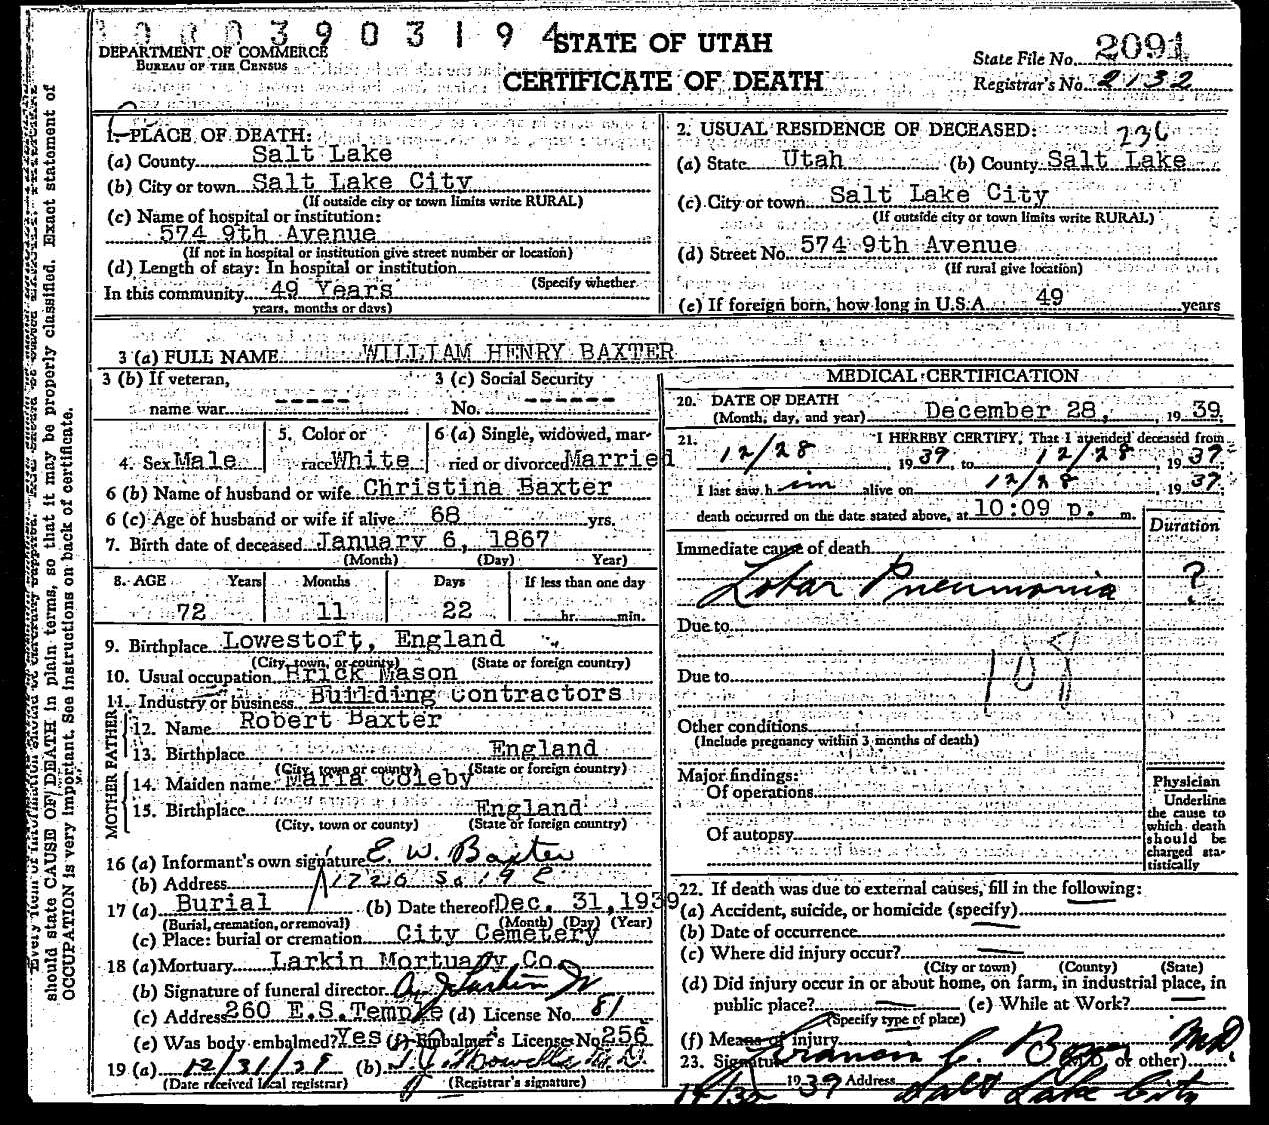 0003903194
STATE OF UTAH
DEPARTMENT OF COMMERCE
BUREAU OF THE CENSUS
CERTIFICATE OF DEATH
State File No. 2091
Registrar's No. 2132
Every item of information should be
should state CAUSE OF DEATH in plain terms, so that it may be properly classified. Exact statement of
OCCUPATION is very important. See instructions on back of certificate.
1. PLACE OF DEATH:
(a) County Salt Lake
(b) City or town Salt Lake City
(If outside city or town limits write RURAL)
(c) Name of hospital or institution:
574 9th Avenue
(If not in hospital or institution give street number or location)
(d) Length of stay: In hospital or institution
(Specify whether
In this community 49 Years
years, months or days)
2. USUAL RESIDENCE OF DECEASED: 236
(a) State Utah (b) County Salt Lake
(c) City or town Salt Lake City
(If outside city or town limits write RURAL)
(d) Street No. 574 9th Avenue
(If rural give location)
(e) If foreign born, how long in U.S.A. 49 years
3 (a) FULL NAME WILLIAM HENRY BAXTER
3 (b) If veteran, 3 (c) Social Security
name war ----- No. ------
4. Sex Male 5. Color or race White 6 (a) Single, widowed, married or divorced Married
6 (b) Name of husband or wife Christina Baxter
6 (c) Age of husband or wife if alive 68 yrs.
7. Birth date of deceased January 6, 1867
(Month) (Day) Year)
8. AGE Years Months Days If less than one day
72 11 22 hr. min.
9. Birthplace Lowestoft, England
(City, town, or county) (State or foreign country)
10. Usual occupation Brick Mason
11. Industry or business Building Contractors
FATHER
12. Name Robert Baxter
13. Birthplace England
(City, town or county) (State or foreign country)
MOTHER
14. Maiden name Maria Coleby
15. Birthplace England
(City, town or county) (State or foreign country)
16 (a) Informant's own signature E. W. Baxter
(b) Address 1726 So 19 E
17 (a) Burial (b) Date thereof Dec. 31, 1939
(Burial, cremation, or removal) (Month) (Day) (Year)
(c) Place: burial or cremation City Cemetery
18 (a) Mortuary Larkin Mortuary Co.
(b) Signature of funeral director Larkin Jr
(c) Address 260 E.S.Temple (d) License No. 81
(e) Was body embalmed? Yes (f) Embalmer's License No 256
19 (a) 12/31/29 (b)
(Date received local registrar) (Registrar's signature)
MEDICAL CERTIFICATION
20. DATE OF DEATH
(Month, day, and year) December 28, 1939.
21. I HEREBY CERTIFY, That I attended deceased from
12/28, 1939 to 12/28, 1939
I last saw him alive on 12/28 1939.
death occurred on the date stated above, at 10:09 p. m.
Duration
Immediate cause of death
Lobar Pneumonia ?
Due to
108
Due to
Other conditions
(Include pregnancy within 3 months of death)
Major findings:
Of operations
Of autopsy
Physician
Underline
the cause to
which death
should be
charged sta-
tistically
22. If death was due to external causes, fill in the following:
(a) Accident, suicide, or homicide (specify)
(b) Date of occurrence
(c) Where did injury occur?
(City or town) (County) (State)
(d) Did injury occur in or about home, on farm, in industrial place, in
public place? (e) While at Work?
(Specify type of place)
(f) Means of injury
23. Signature Francis C. M.D. (M.D. or other)
1939 Address Salt Lake City